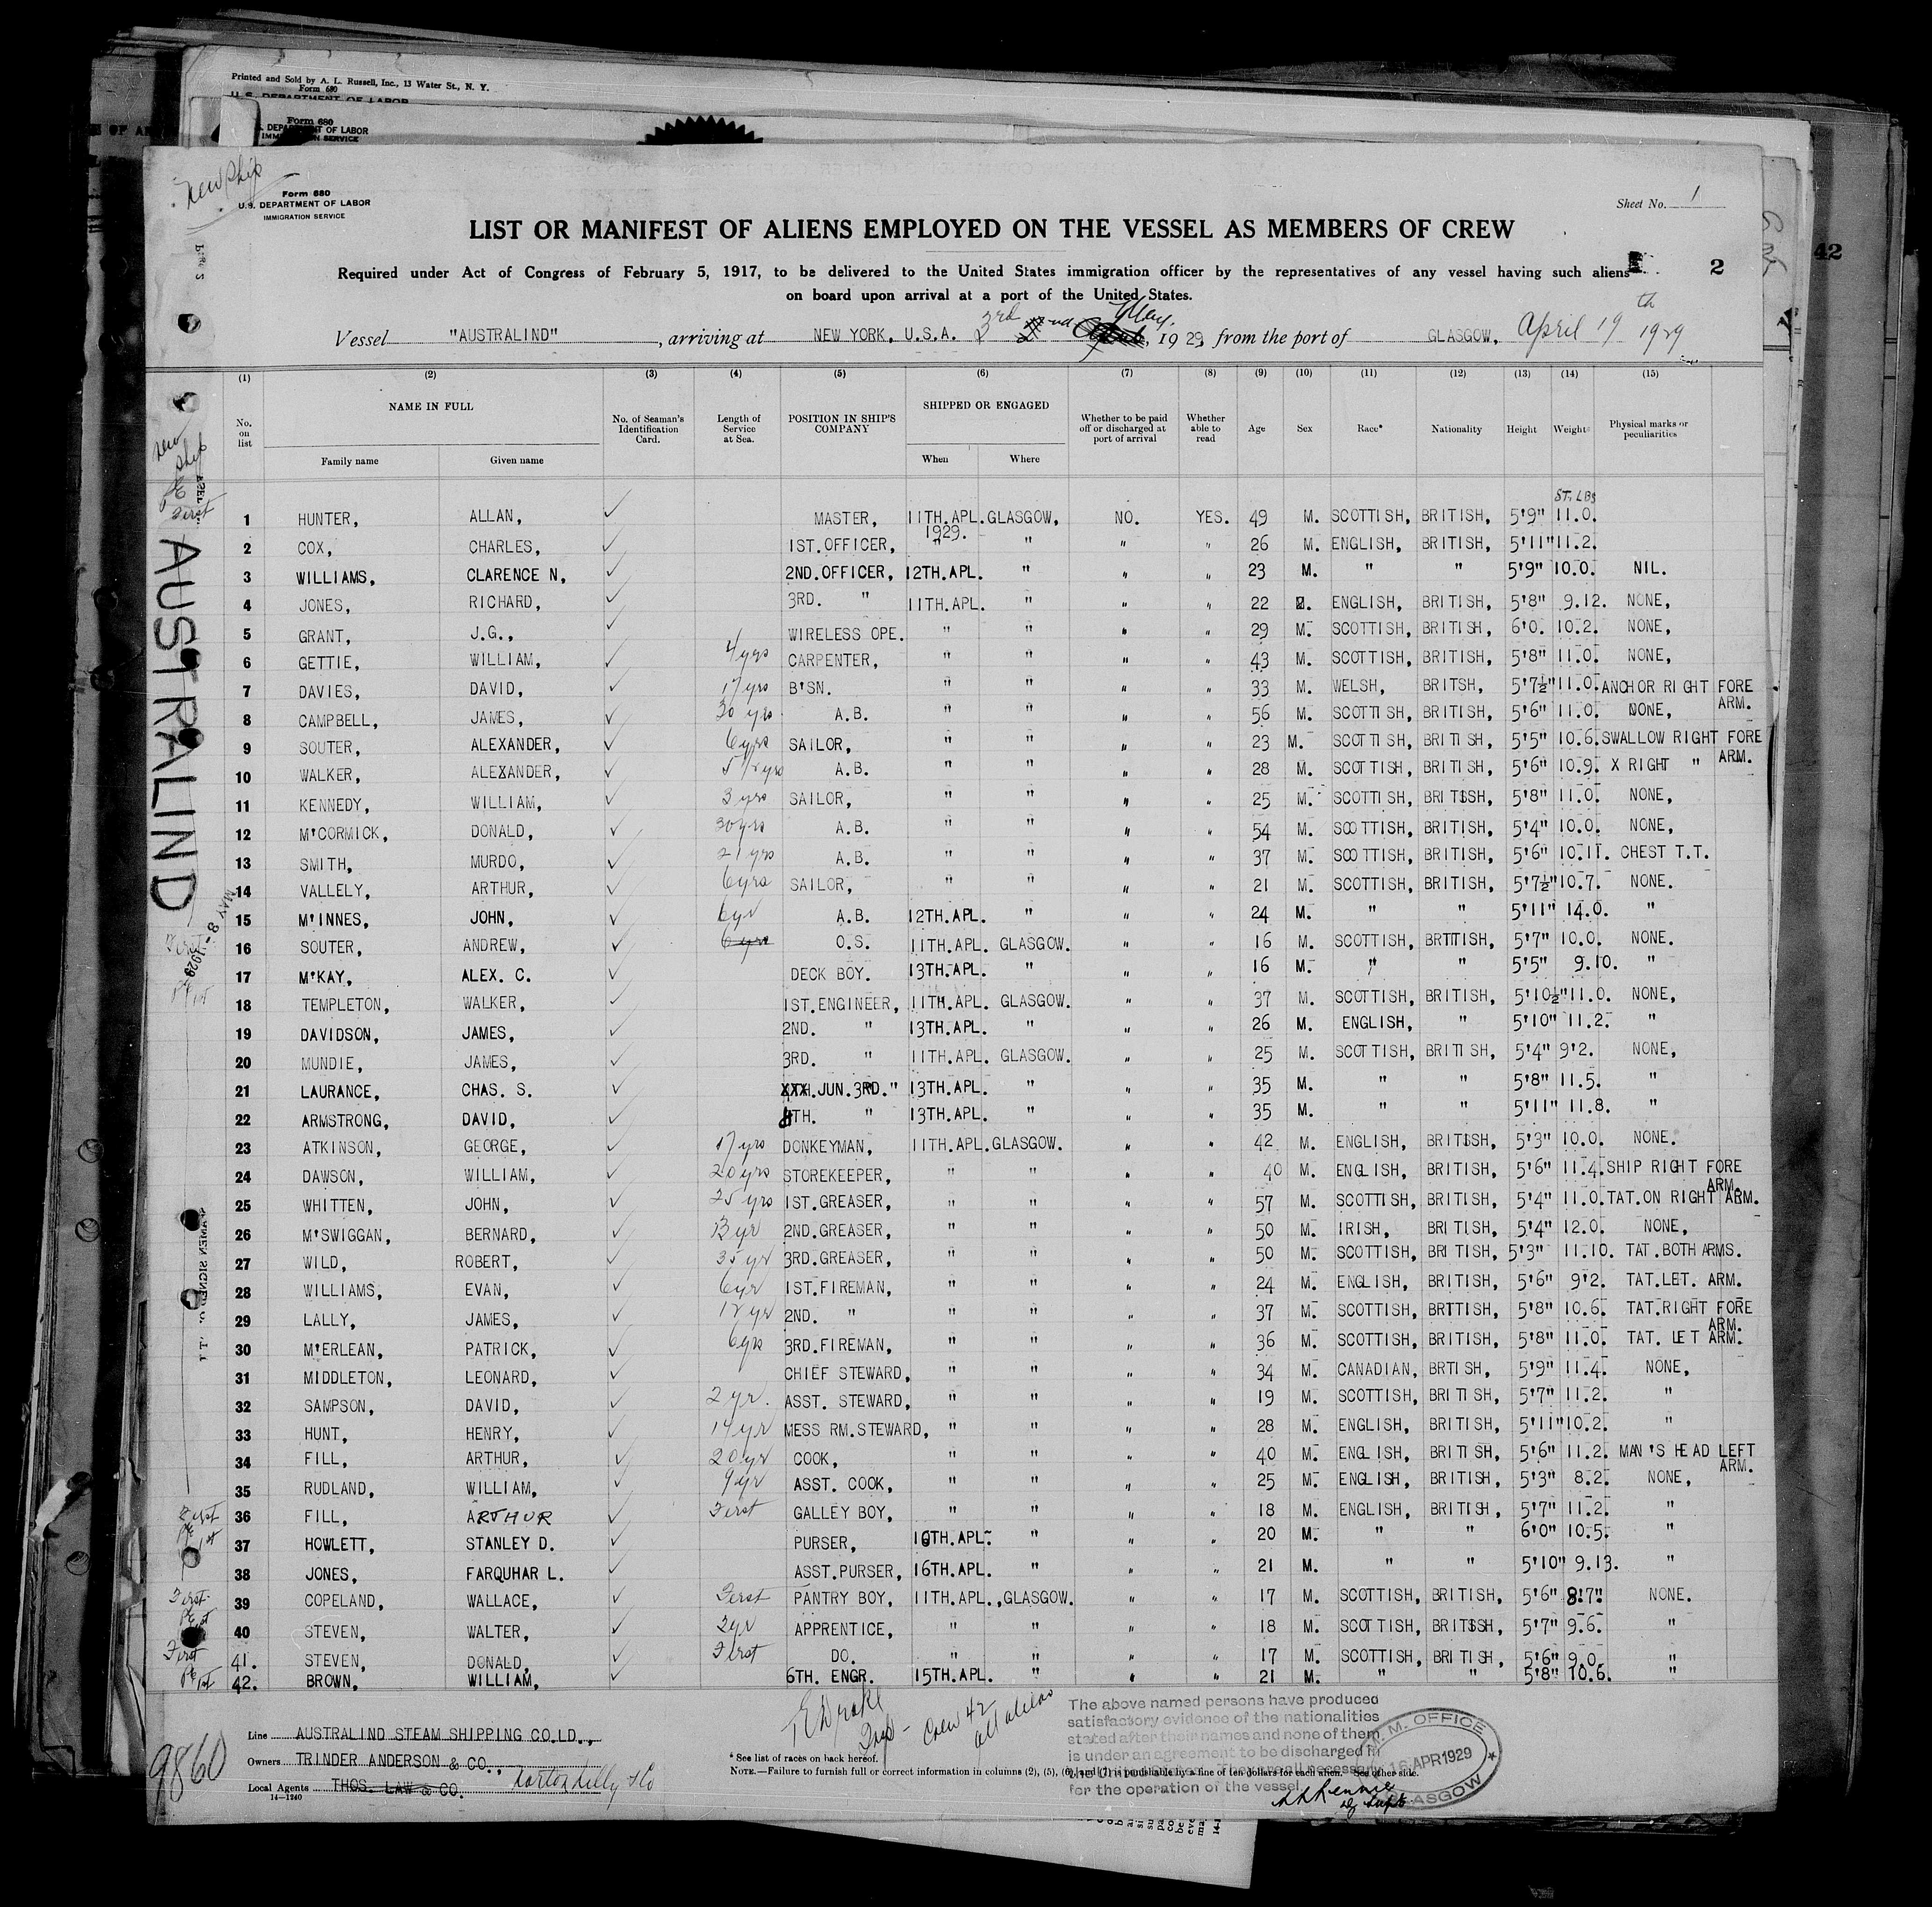 Printed and Sold by A. L. Russell, Inc., 13 Water St., N. Y.
Form 680
U.S. DEPARTMENT OF LABOR
Form 680
DEPARTMENT OF LABOR
New ship
Form 680
U.S. DEPARTMENT OF LABOR
IMMIGRATION SERVICE
Sheet No. 1
LIST OR MANIFEST OF ALIENS EMPLOYED ON THE VESSEL AS MEMBERS OF CREW
Required under Act of Congress of February 5, 1917, to be delivered to the United States immigration officer by the representatives of any vessel having such aliens
on board upon arrival at a port of the United States.
2
42
Vessel "AUSTRALIND", arriving at NEW YORK, U.S.A. 3rd May, 1929, from the port of GLASGOW, April 19th 1929
(1) (2) (3) (4) (5) (6) (7) (8) (9) (10) (11) (12) (13) (14) (15)
No. on list NAME IN FULL Family name Given name No. of Seaman's Identification Card. Length of Service at Sea. POSITION IN SHIP'S COMPANY SHIPPED OR ENGAGED When Where Whether to be paid off or discharged at port of arrival Whether able to read Age Sex Race* Nationality Height Weight Physical marks or peculiarities
ST. LBS
1 HUNTER, ALLAN, ✓ MASTER, 11TH.APL. 1929. GLASGOW, NO. YES. 49 M. SCOTTISH, BRITISH, 5'9" 11.0.
2 COX, CHARLES, ✓ 1ST.OFFICER, " " " " 26 M. ENGLISH, BRITISH, 5'11" 11.2.
3 WILLIAMS, CLARENCE N, ✓ 2ND.OFFICER, 12TH.APL. " " " 23 M. " " 5'9" 10.0. NIL.
4 JONES, RICHARD, ✓ 3RD. " 11TH.APL. " " " 22 M. ENGLISH, BRITISH, 5'8" 9.12. NONE,
5 GRANT, J.G., ✓ WIRELESS OPE. " " " " 29 M. SCOTTISH, BRITISH, 6'0. 10.2. NONE,
6 GETTIE, WILLIAM, ✓ 4yrs CARPENTER, " " " " 43 M. SCOTTISH, BRITISH, 5'8" 11.0. NONE,
7 DAVIES, DAVID, ✓ 17 yrs B'SN. " " " " 33 M. WELSH, BRITSH, 5'7½" 11.0. ANCHOR RIGHT FORE ARM.
8 CAMPBELL, JAMES, ✓ 30 yrs A.B. " " " " 56 M. SCOTTISH, BRITISH, 5'6" 11.0. NONE,
9 SOUTER, ALEXANDER, ✓ 6yrs SAILOR, " " " " 23 M. SCOTTISH, BRITISH, 5'5" 10.6. SWALLOW RIGHT FORE ARM.
10 WALKER, ALEXANDER, ✓ A.B. " " " " 28 M. SCOTTISH, BRITISH, 5'6" 10.9. X RIGHT "
11 KENNEDY, WILLIAM, ✓ 3 yrs SAILOR, " " " " 25 M. SCOTTISH, BRITSSH, 5'8" 11.0. NONE,
12 M'CORMICK, DONALD, ✓ 30yrs A.B. " " " " 54 M. SCOTTISH, BRITISH, 5'4" 10.0. NONE,
13 SMITH, MURDO, ✓ 21 yrs A.B. " " " " 37 M. SCOTTISH, BRITISH, 5'6" 10.11. CHEST T.T.
14 VALLELY, ARTHUR, ✓ 6yrs SAILOR, " " " " 21 M. SCOTTISH, BRITISH, 5'7½" 10.7. NONE.
15 M'INNES, JOHN, ✓ 6yr A.B. 12TH.APL. " " " 24 M. " " 5'11" 14.0. "
16 SOUTER, ANDREW, ✓ 6 yrs O.S. 11TH.APL. GLASGOW. " " 16 M. SCOTTISH, BRTTISH, 5'7" 10.0. NONE.
17 M'KAY, ALEX. C. ✓ DECK BOY. 13TH.APL. " " " 16 M. " " 5'5" 9.10. "
18 TEMPLETON, WALKER, ✓ 1ST.ENGINEER, 11TH.APL. GLASGOW. " " 37 M. SCOTTISH, BRITISH, 5'10½" 11.0. NONE,
19 DAVIDSON, JAMES, ✓ 2ND. " 13TH.APL. " " " 26 M. ENGLISH, " 5'10" 11.2. "
20 MUNDIE, JAMES, ✓ 3RD. " 11TH.APL. GLASGOW. " " 25 M. SCOTTISH, BRITISH, 5'4" 9'2. NONE,
21 LAURANCE, CHAS. S. ✓ XXX.JUN.3RD. " 13TH.APL. " " " 35 M. " " 5'8" 11.5. "
22 ARMSTRONG, DAVID, ✓ 4TH. " 13TH.APL. " " " 35 M. " " 5'11" 11.8. "
23 ATKINSON, GEORGE, ✓ 17 yrs DONKEYMAN, 11TH.APL. GLASGOW. " " 42 M. ENGLISH, BRITISH, 5'3" 10.0. NONE.
24 DAWSON, WILLIAM, ✓ 20 yrs STOREKEEPER, " " " " 40 M. ENGLISH, BRITISH, 5'6" 11.4. SHIP RIGHT FORE ARM.
25 WHITTEN, JOHN, ✓ 25 yrs 1ST.GREASER, " " " " 57 M. SCOTTISH, BRITISH, 5'4" 11.0. TAT.ON RIGHT ARM.
26 M'SWIGGAN, BERNARD, ✓ 13 yr 2ND.GREASER, " " " " 50 M. IRISH, BRITISH, 5'4" 12.0. NONE,
27 WILD, ROBERT, ✓ 35 yr 3RD.GREASER, " " " " 50 M. SCOTTISH, BRITISH, 5'3" 11.10. TAT.BOTH ARMS.
28 WILLIAMS, EVAN, ✓ 6yr 1ST.FIREMAN, " " " " 24 M. ENGLISH, BRITISH, 5'6" 9'2. TAT.LET. ARM.
29 LALLY, JAMES, ✓ 12 yr 2ND. " " " " " 37 M. SCOTTISH, BRTTISH, 5'8" 10.6. TAT.RIGHT FORE ARM.
30 M'ERLEAN, PATRICK, ✓ 6yrs 3RD.FIREMAN, " " " " 36 M. SCOTTISH, BRITISH, 5'8" 11.0. TAT. LET ARM.
31 MIDDLETON, LEONARD, ✓ CHIEF STEWARD, " " " " 34 M. CANADIAN, BRTISH, 5'9" 11.4. NONE,
32 SAMPSON, DAVID, ✓ 2 yr. ASST. STEWARD, " " " " 19 M. SCOTTISH, BRITISH, 5'7" 11.2. "
33 HUNT, HENRY, ✓ 14 yr MESS RM.STEWARD, " " " " 28 M. ENGLISH, BRITISH, 5'11" 10.2. "
34 FILL, ARTHUR, ✓ 20yr COOK, " " " " 40 M. ENGLISH, BRITISH, 5'6" 11.2. MAN'S HEAD LEFT ARM.
35 RUDLAND, WILLIAM, ✓ 9yr ASST. COOK, " " " " 25 M. ENGLISH, BRITISH, 5'3" 8.2. NONE,
36 FILL, ARTHUR ✓ First GALLEY BOY, " " " " 18 M. ENGLISH, BRITISH, 5'7" 11.2. "
37 HOWLETT, STANLEY D. ✓ PURSER, 16TH.APL. " " " 20 M. " " 6'0" 10.5. "
38 JONES, FARQUHAR L. ✓ ASST.PURSER, 16TH.APL. " " " 21 M. " " 5'10" 9.13. "
39 COPELAND, WALLACE, ✓ First PANTRY BOY, 11TH.APL., GLASGOW. " " 17 M. SCOTTISH, BRITISH, 5'6" 8.7. NONE.
40 STEVEN, WALTER, ✓ 2yr APPRENTICE, " " " " 18 M. SCOTTISH, BRITSSH, 5'7" 9.6. "
41. STEVEN, DONALD, ✓ First DO. " " " " 17 M. SCOTTISH, BRITISH, 5'6" 9.0. "
42. BROWN, WILLIAM, ✓ 6TH. ENGR. 15TH.APL. " " " 21 M. " " 5'8" 10.6. "
New ship
First
AUSTRALIND
MAY -8 1929
First
1st
First
1st
First
First
1st
9860
Line AUSTRALIND STEAM SHIPPING CO.LD.,
Owners TRINDER ANDERSON & CO.,
Local Agents THOS. LAW & CO. Norton Lilly & Co
14—1240
Crew 42
all aliens
* See list of races on back hereof.
NOTE.—Failure to furnish full or correct information in columns (2), (5), (6), and (7) is punishable by a fine of ten dollars for each alien. See other side.
The above named persons have produced
satisfactory evidence of the nationalities
stated after their names and none of them
is under an agreement to be discharged in
for the operation of the vessel.
M.M. OFFICE
16 APR 1929
GLASGOW